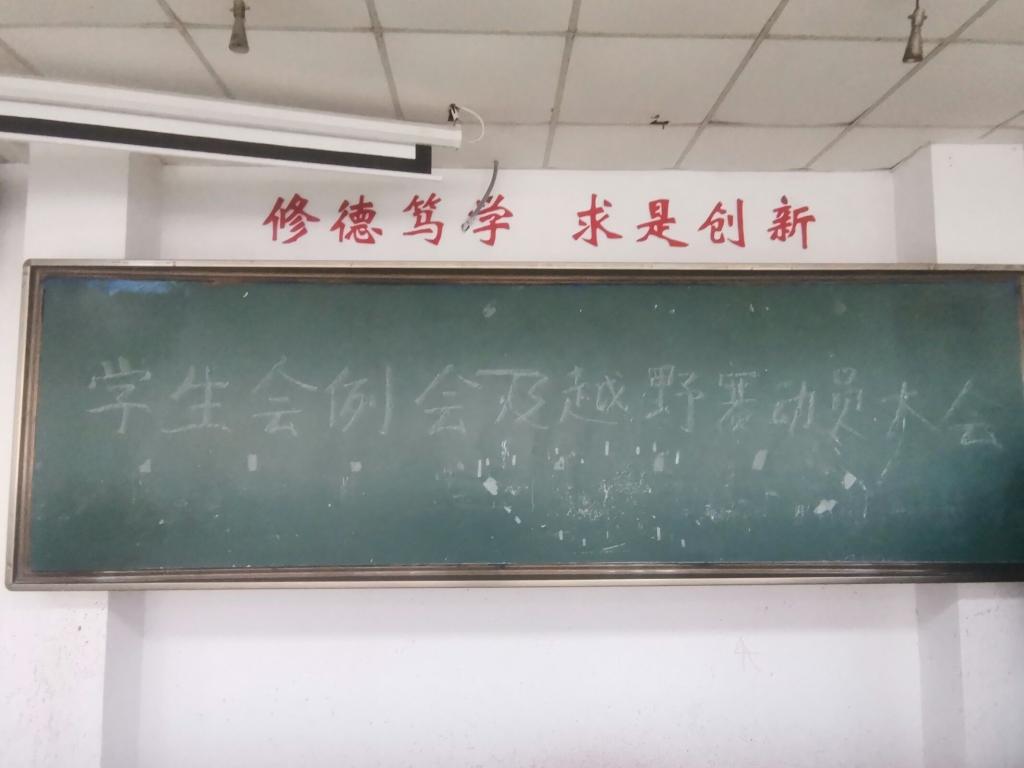 修德笃学 求是创新
学生会例会及越野赛动员大会